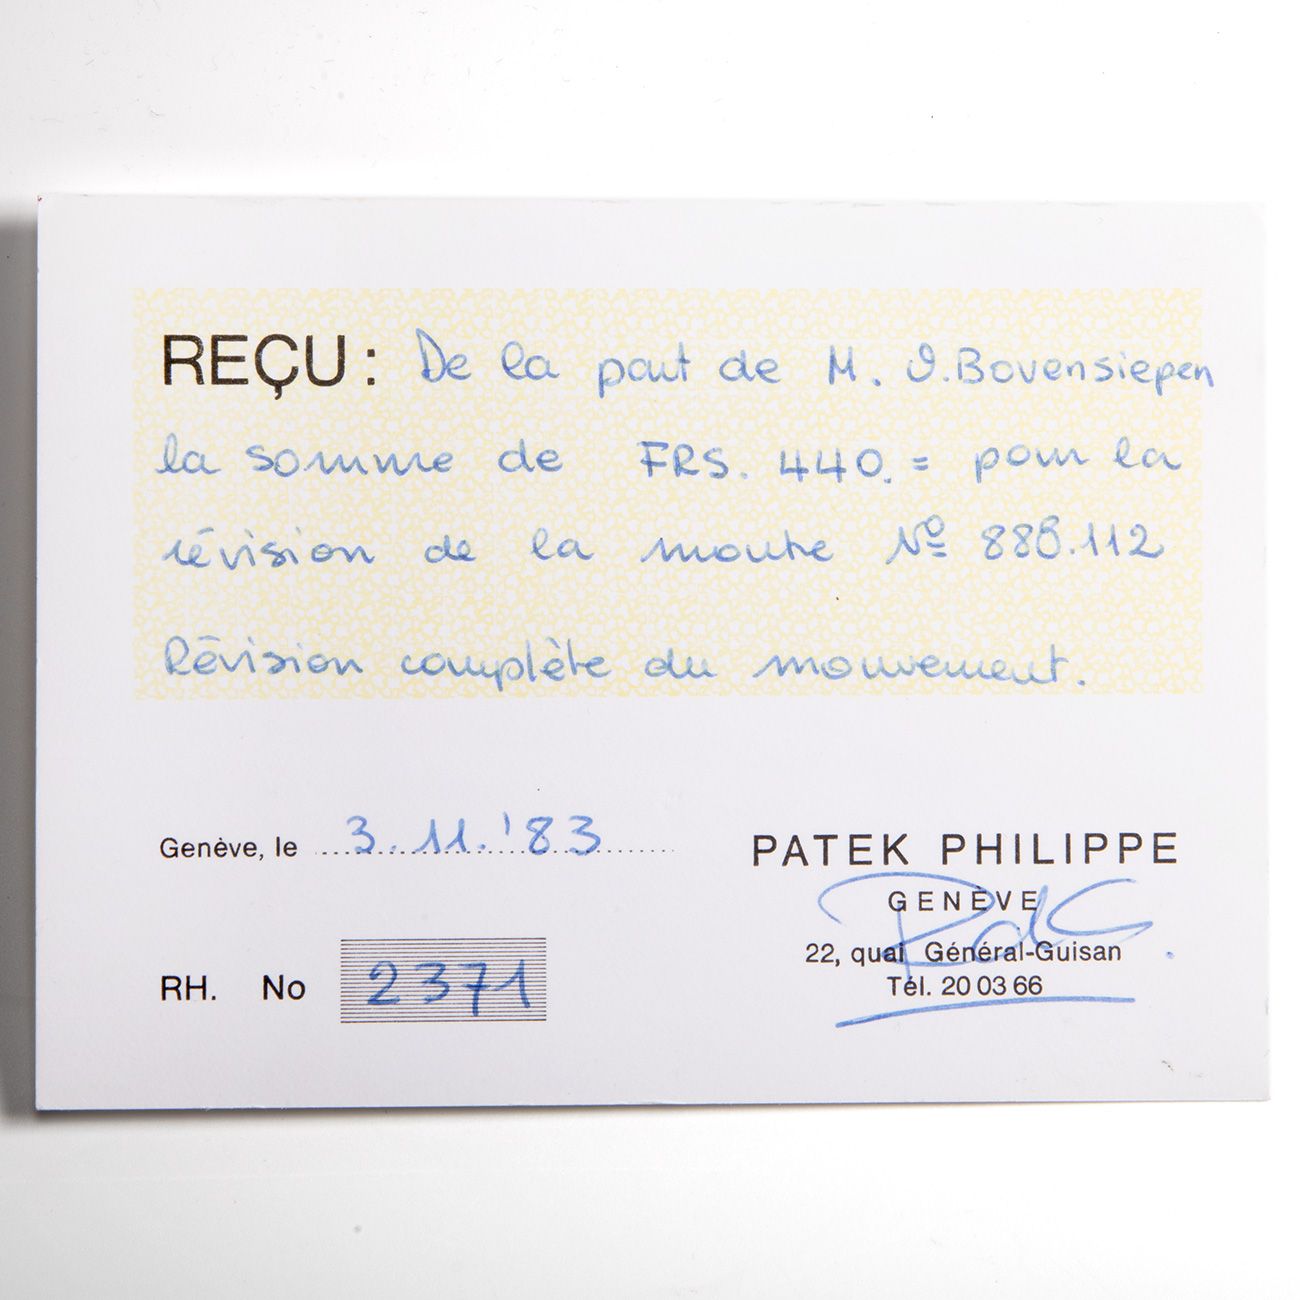 REÇU : De la part de M. J. Bovensiepen
la somme de FRS. 440.= pour la
révision de la montre Nº 888.112
Révision complète du mouvement.
Genève, le 3.11.'83
PATEK PHILIPPE
GENÈVE
22, quai Général-Guisan
Tél. 20 03 66
RH. No 2371